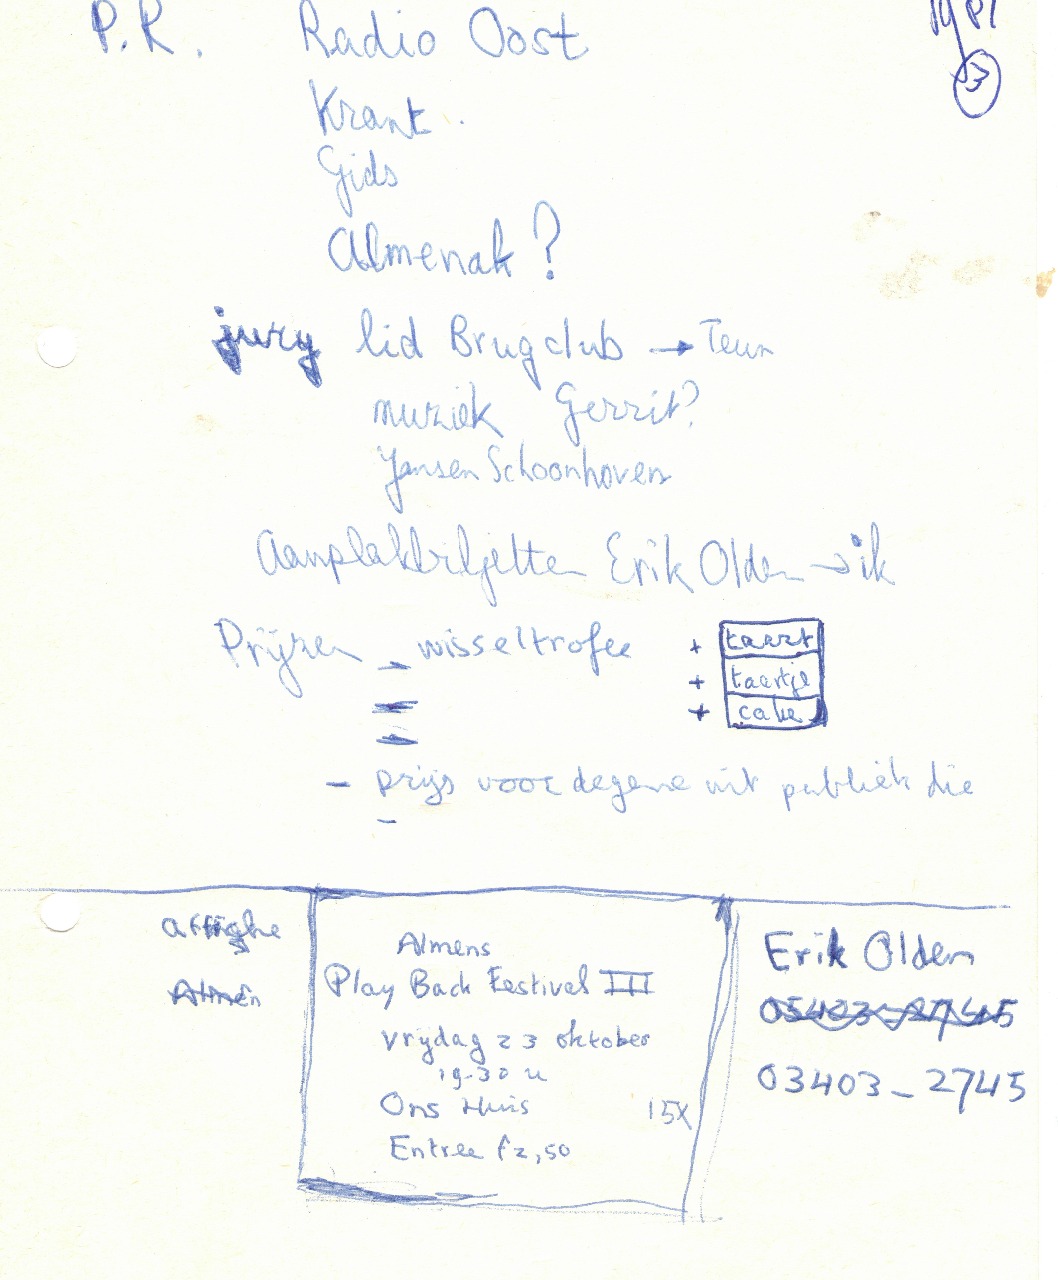 P.R. Radio Oost
Krant.
Gids
Almenak?
jury lid Brugclub → Teun
muziek Gerrit?
Jansen Schoonhoven
Aanplakbiljetten Erik Olden → ik
Prijzen - wisseltrofee + taart
+ taartje
+ cake
- prijs voor degene uit publiek die
-
affiche
Almens
Play Back Festival III
vrijdag 23 oktober
19.30 u
Ons Huis
15X
Entree f 2,50
Almen
Erik Olden
03403-2745